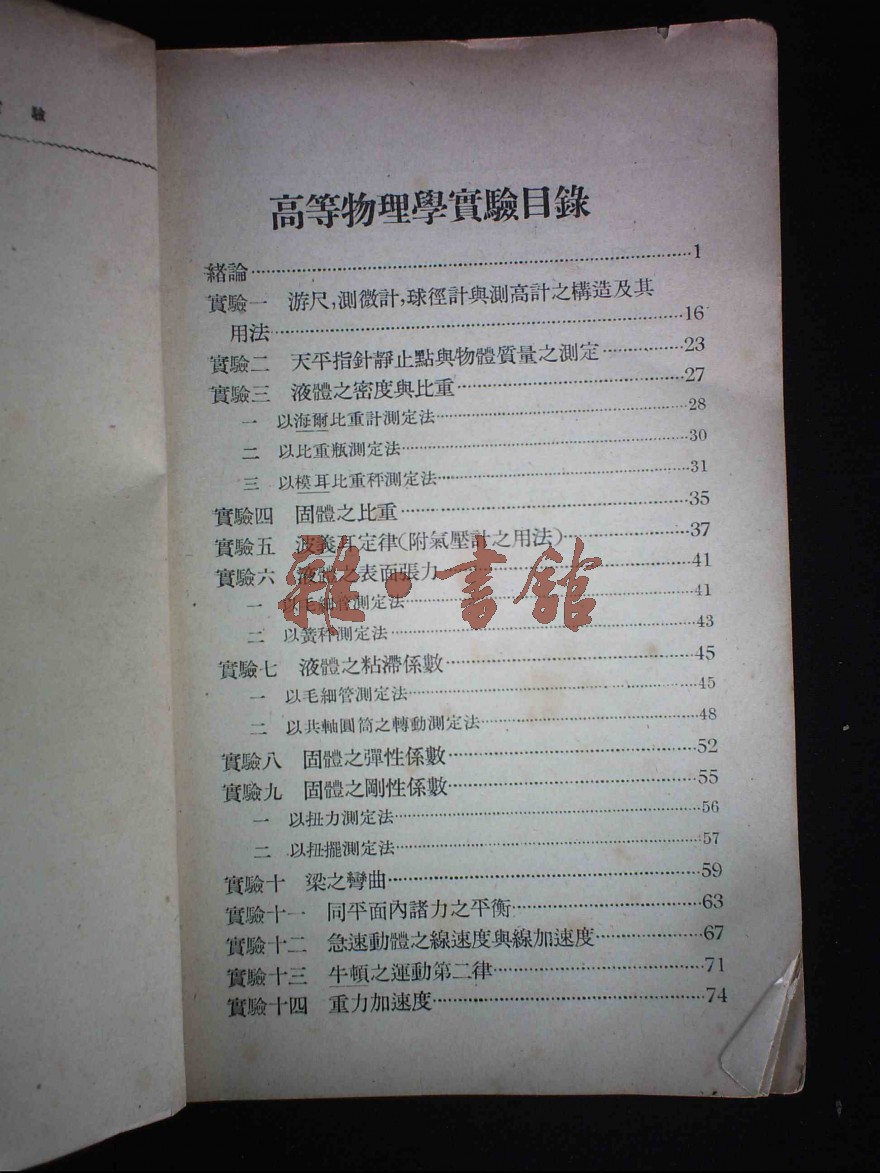 驗
高等物理學實驗目錄
緒論……1
實驗一 游尺,測微計,球徑計與測高計之構造及其
用法……16
實驗二 天平指針靜止點與物體質量之測定……23
實驗三 液體之密度與比重……27
一 以海爾比重計測定法……28
二 以比重瓶測定法……30
三 以模耳比重秤測定法……31
實驗四 固體之比重……35
實驗五 波義耳定律(附氣壓計之用法)……37
實驗六 液體之表面張力……41
一 以毛細管測定法……41
二 以簧秤測定法……43
雜·書館
實驗七 液體之粘滯係數……45
一 以毛細管測定法……45
二 以共軸圓筒之轉動測定法……48
實驗八 固體之彈性係數……52
實驗九 固體之剛性係數……55
一 以扭力測定法……56
二 以扭擺測定法……57
實驗十 梁之彎曲……59
實驗十一 同平面內諸力之平衡……63
實驗十二 急速動體之線速度與線加速度……67
實驗十三 牛頓之運動第二律……71
實驗十四 重力加速度……74